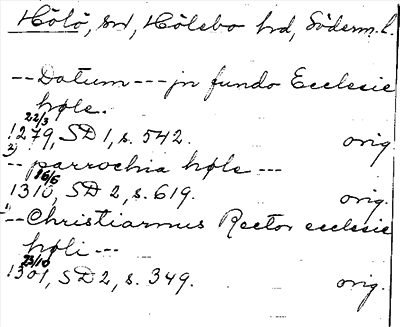 Hölö, sn, Hölebo hd, Söderm.l.
-- Datum --- jn fundo Ecclesie
høle.
22/3
1279, SD 1, s. 542. orig.
2)
-- parrochia høle ---
16/6
1310, SD 2, s. 619. orig.
-- Christiarnus Rector ecclesie
høli ---
23/10
1301, SD 2, s. 349. orig.